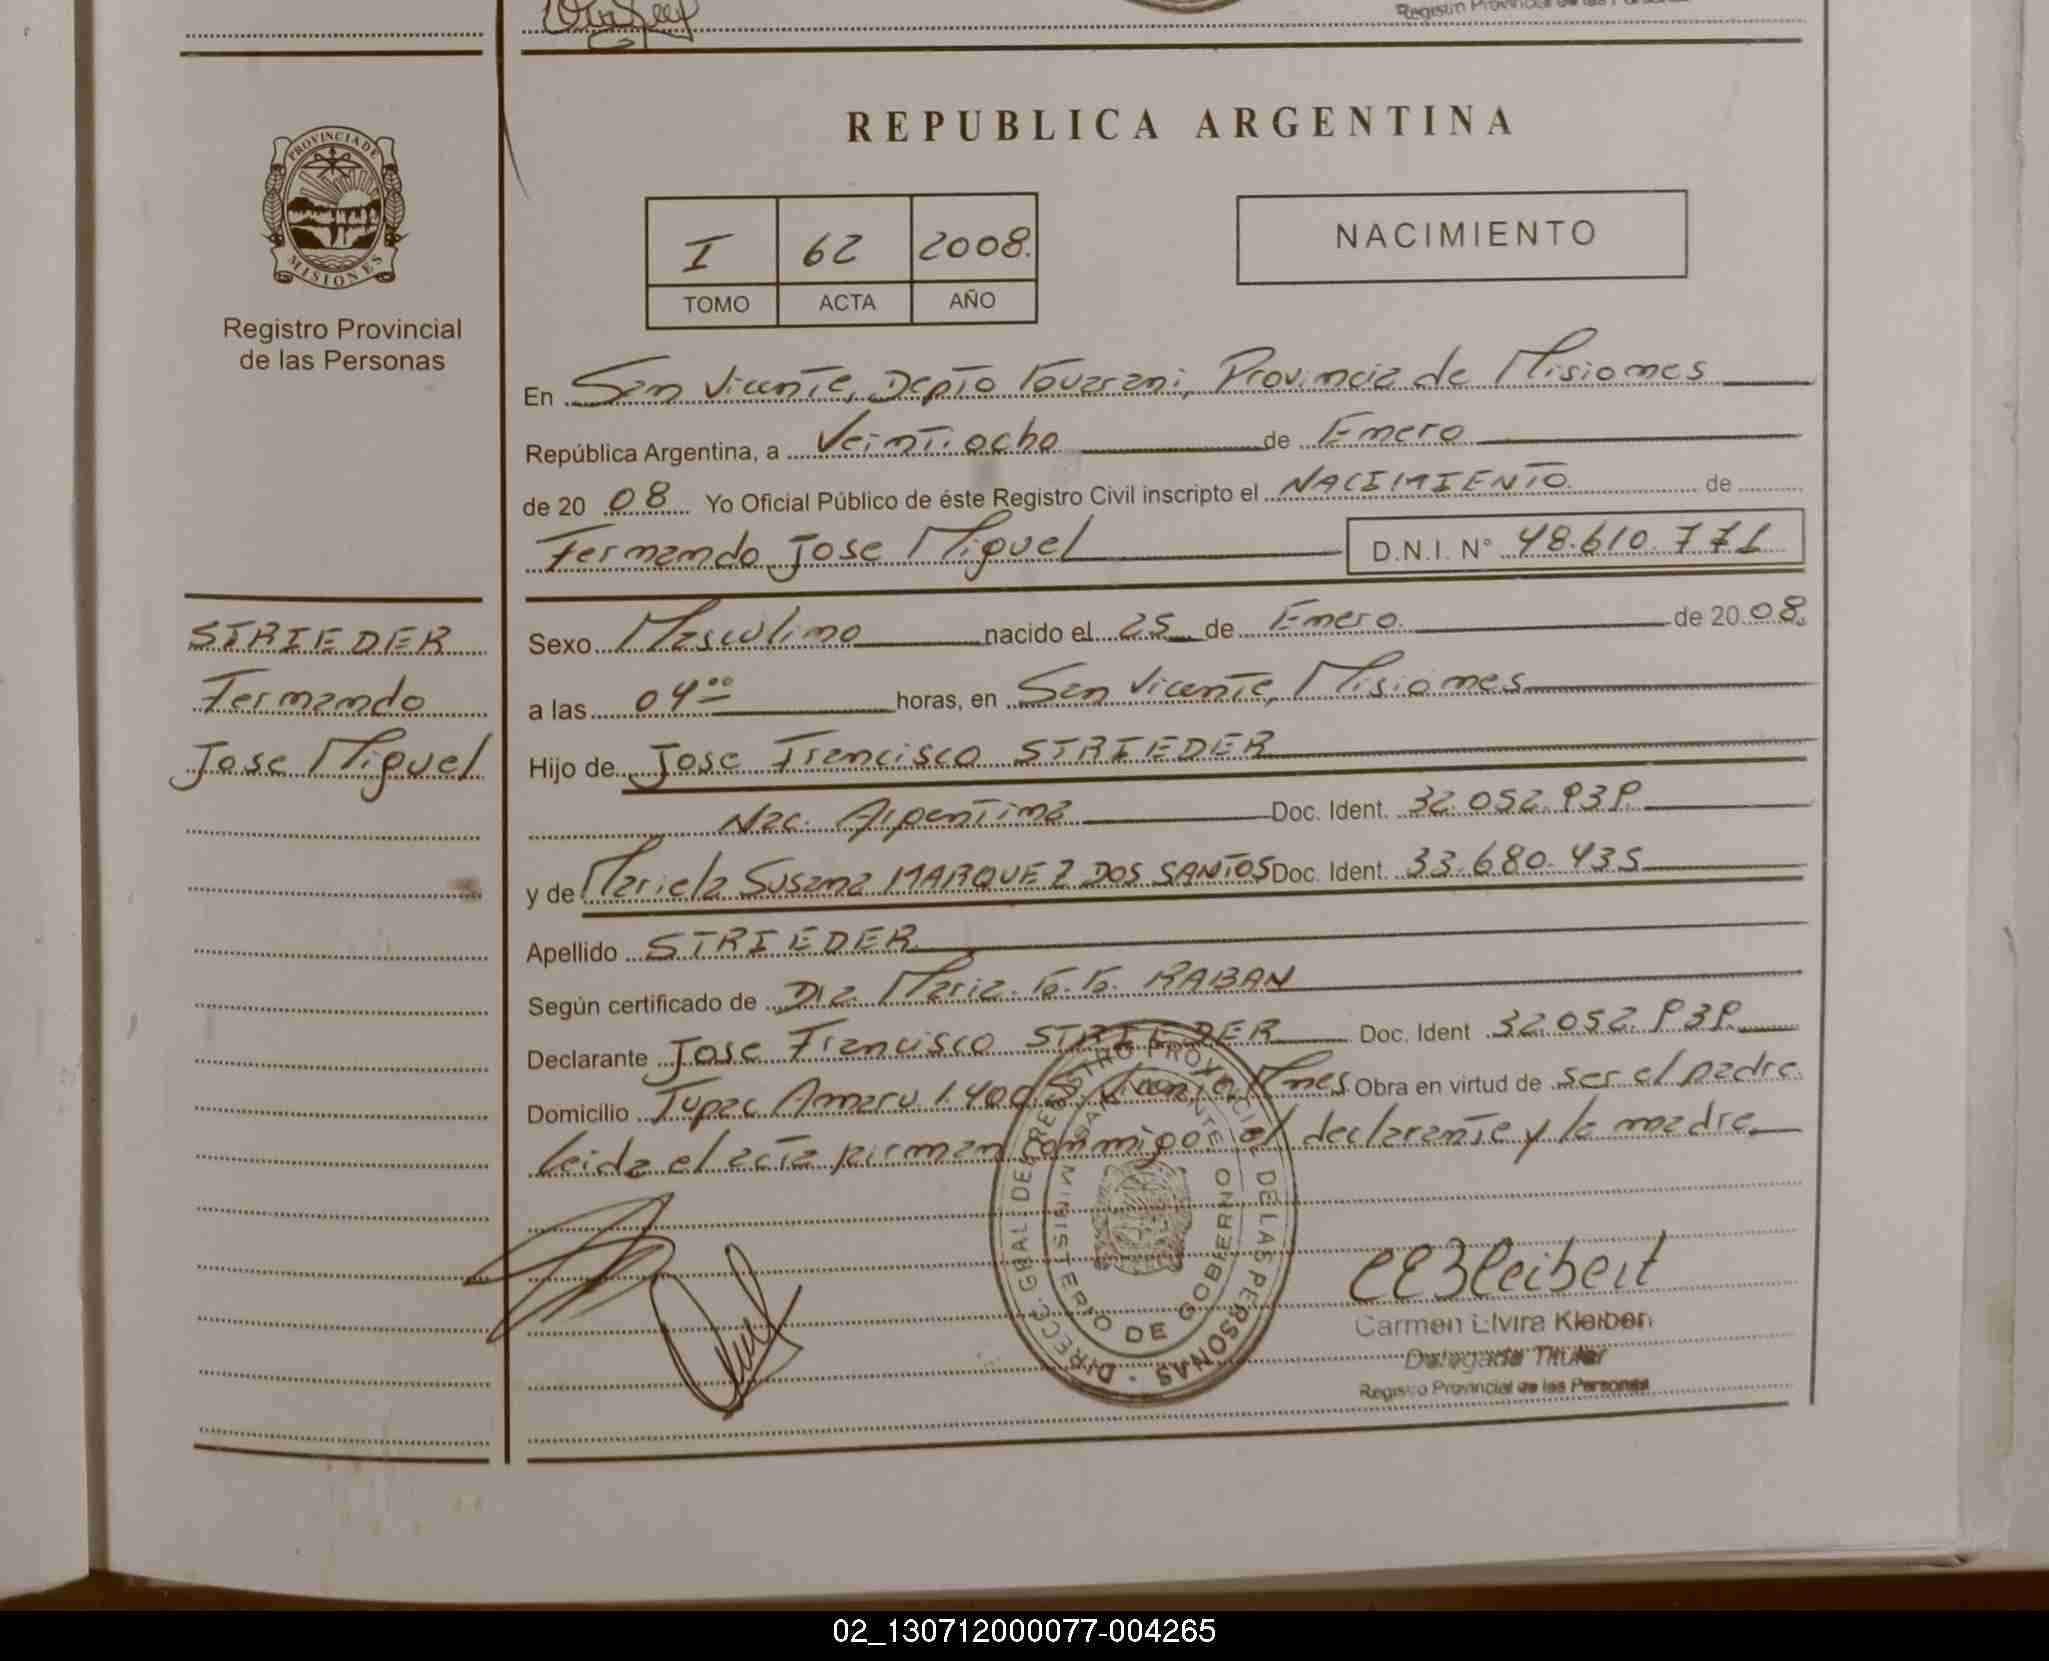 Registro Provincial de las Personas
REPUBLICA ARGENTINA
PROVINCIA DE
MISIONES
Registro Provincial
de las Personas
I 62 2008.
TOMO ACTA AÑO
NACIMIENTO
En San Vicente, Depto Guarani, Provincia de Misiones
República Argentina, a Veintiocho de Enero
de 20 08 Yo Oficial Público de éste Registro Civil inscripto el NACIMIENTO de
Fernando Jose Miguel D.N.I. N° 48.610.771
STRIEDER
Fernando
Jose Miguel
Sexo Masculino nacido el 25 de Enero de 20 08.
a las 04 00 horas, en San Vicente, Misiones
Hijo de Jose Francisco STRIEDER
Nac. Argentina Doc. Ident. 32.052.939
y de Mariela Susana MARQUEZ DOS SANTOS Doc. Ident. 33.680.435
Apellido STRIEDER
Según certificado de Dra. Maria. G.G. RABAN
Declarante Jose Francisco STRIEDER Doc. Ident 32.052.939
Domicilio Tupac Amaru 1.400 S. Vicente, Mnes Obra en virtud de ser el padre
leida el acta firman conmigo, el declarante y la madre
DIRECC. GRAL DEL REGISTRO PROVINCIAL DE LAS PERSONAS
MINISTERIO DE GOBIERNO
SAN VICENTE
CEKleibert
Carmen Elvira Kleibert
Delegada Titular
Registro Provincial de las Personas
02_130712000077-004265